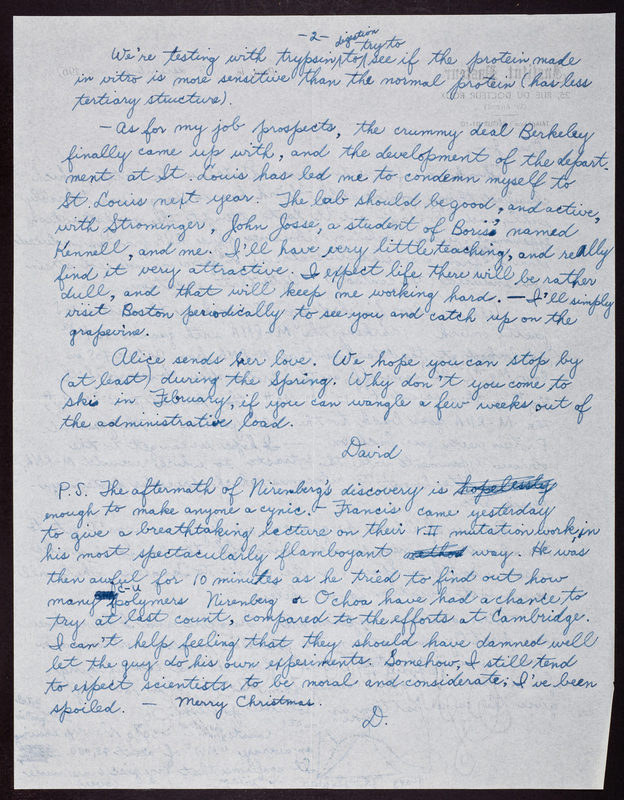 -2-
We're testing with trypsin digestion to try to see if the protein made
in vitro is more sensitive than the normal protein (has less
tertiary structure).
- As for my job prospects, the crummy deal Berkeley
finally came up with, and the development of the depart-
ment at St. Louis has led me to condemn myself to
St Louis next year. The lab should be good, and active,
with Strominger, John Josse, a student of Boris' named
Kennell, and me. I'll have very little teaching, and really
find it very attractive. I expect life there will be rather
dull, and that will keep me working hard. - I'll simply
visit Boston periodically to see you and catch up on the
grapevine.
Alice sends her love. We hope you can stop by
(at least) during the Spring. Why don't you come to
ski in February, if you can wangle a few weeks out of
the administrative load.
David
P.S. The aftermath of Nirenberg's discovery is hopelessly
enough to make anyone a cynic. - Francis came yesterday
to give a breathtaking lecture on their rII mutation work, in
his most spectacularly flamboyant way. He was
then awful for 10 minutes as he tried to find out how
many C-U polymers Nirenberg or Ochoa have had a chance to
try at last count, compared to the efforts at Cambridge.
I can't help feeling that they should have damned well
let the guy do his own experiments. Somehow, I still tend
to expect scientists to be moral and considerate; I've been
spoiled. - Merry Christmas.
D.